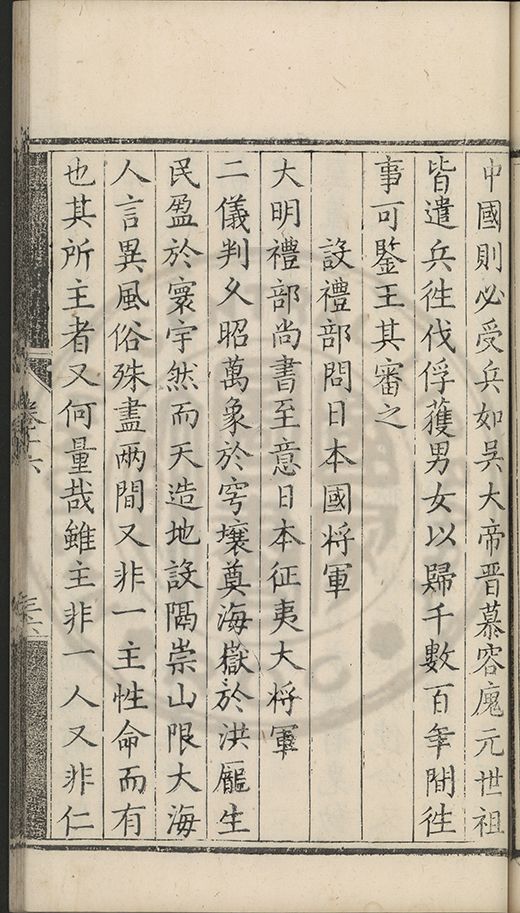 中國則必受兵如吳大帝晋慕容廆元世祖
皆遣兵徃伐俘獲男女以歸千數百年間徃
事可鑒王其審之
設禮部問日本國將軍
大明禮部尚書至意日本征夷大將軍
二儀判乂昭萬象於穹壤奠海嶽於洪龎生
民盈於寰宇然而天造地設隔崇山限大海
人言異風俗殊盡兩間又非一主性命而有
也其所主者又何量哉雖主非一人又非仁